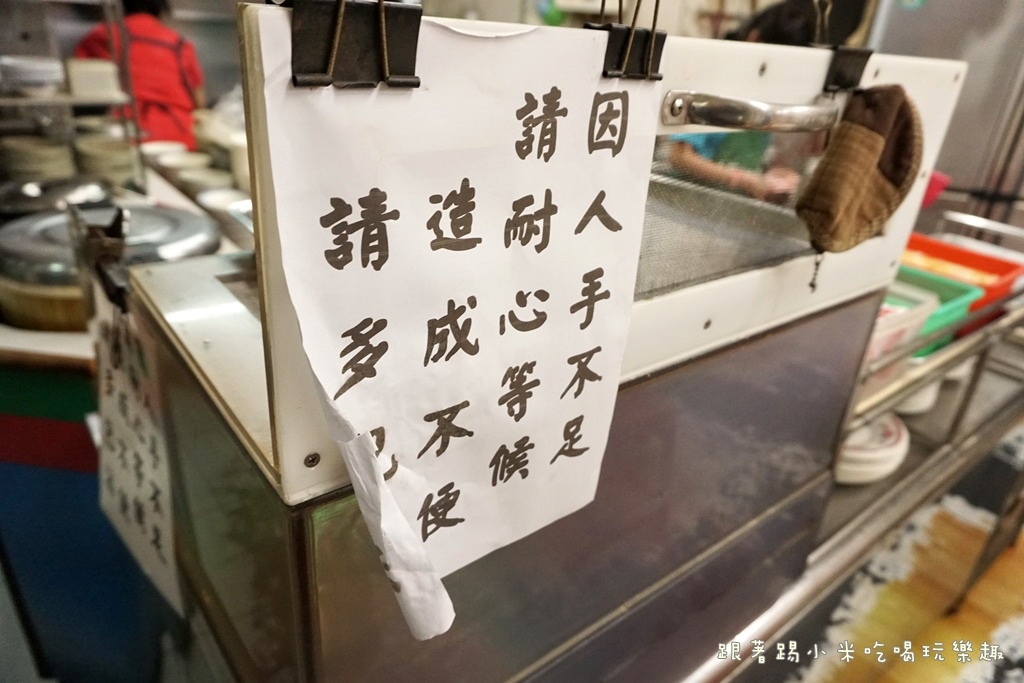 因人手不足
請耐心等候
造成不便
請多
跟著踢小米吃喝玩樂趣